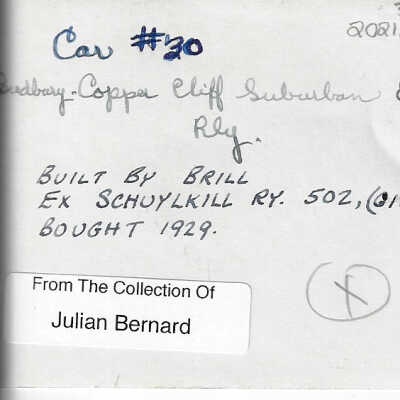 2021
Car #20
Sudbury-Copper Cliff Suburban
Rly.
BUILT BY BRILL
EX SCHUYLKILL RY. 502,
BOUGHT 1929.
From The Collection Of
Julian Bernard
X